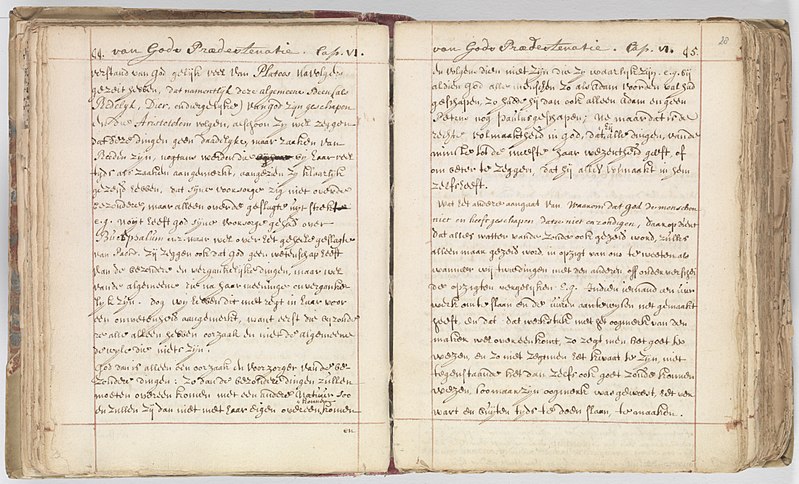 44. van Gods Prædestinatie. Cap. VI.
verstand van God gelijk veel van Platoos navolgers
gezeit hebben, dat namentlyk deze algemeene Ideen (als
Redelyk, Dier, en diergelyke) van god zyn geschapen
en die Aristotelem volgen, alschoon zy wel zeggen
dat deze dingen geen daadelyke, maar zaaken van
Reeden zyn, nogtans worden die by haar veel
tyds als zaaken aangemerkt, aangezien zy klaarlyk
gezeid hebben, dat syne voorsorge zig niet over de
bezondere, maar alleen over de geslagte uyt strekt
e.g. noyt heeft god syne voorsorge gehad over
Bucephalum enz. maar wel over het geheele geslagte
van Paard. zy zeggen ook dat God geen wetenschap heeft
van de bezondere en vergankelyke dingen, maar wel
van de algemeene die na haar meeninge onverganke
lyk zyn. dog wy hebben dit met regt in haar voor
een onwetenheid aangemerkt, want eerst die byzonde
re alle alleen hebben oorzaak en niet de algemeene
dewyle die niets zyn.
God dan is alleen een oorzaak en voorzorger van de be-
zondere dingen: zo dan de bezondere dingen zullen
moeten overeen komen met een andere Natuur zoo
en zullen zij dan niet met haar eigen konnen overeen komen
en
van Gods Prædestinatie. Cap. VI. 45.
20
en volgens dien niet zyn die zy waarlyk zyn. e.g. bij
aldien God alle menschen zo als Adam voor den val had
geschapen zo hadde hij dan ook alleen Adam en geen
Petrus nog Paulus geschapen; Ne maar dat is de
rechte volmaaktheid in God, dat hij alle dingen, van de
minste tot de meeste haar wezentheid geeft, of
om beter te zeggen, dat hij alles volmaakt in hem
zelfs heeft.
Wat het andere aangaat van Waarom dat God de menschen
niet en heeft geschapen dat ze niet en zondigen, daar op dient
dat alles wat ter van de zonde ook gezeid word, zulks
alleen maar gezeid word in opzigt van ons te weeten als
wanneer wij twee dingen met den anderen off onder verscheij
de opzigten vergelijken E.g. Indien iemand een uur
werk om te slaan en de uuren aan te wijsen net gemaakt
heeft, en dat dat werkstuk met het oogmerk van den
maker wel over een komt, zo zegt men het goet te
weezen, en zo niet zegt men het kwaat te zijn, niet
tegenstaande het dan zelfs ook goet zonde konnen
weezen, soo maar zijn oogmerk was geweest, het ver
wart en buyten tijds te doen slaan, te maaken.